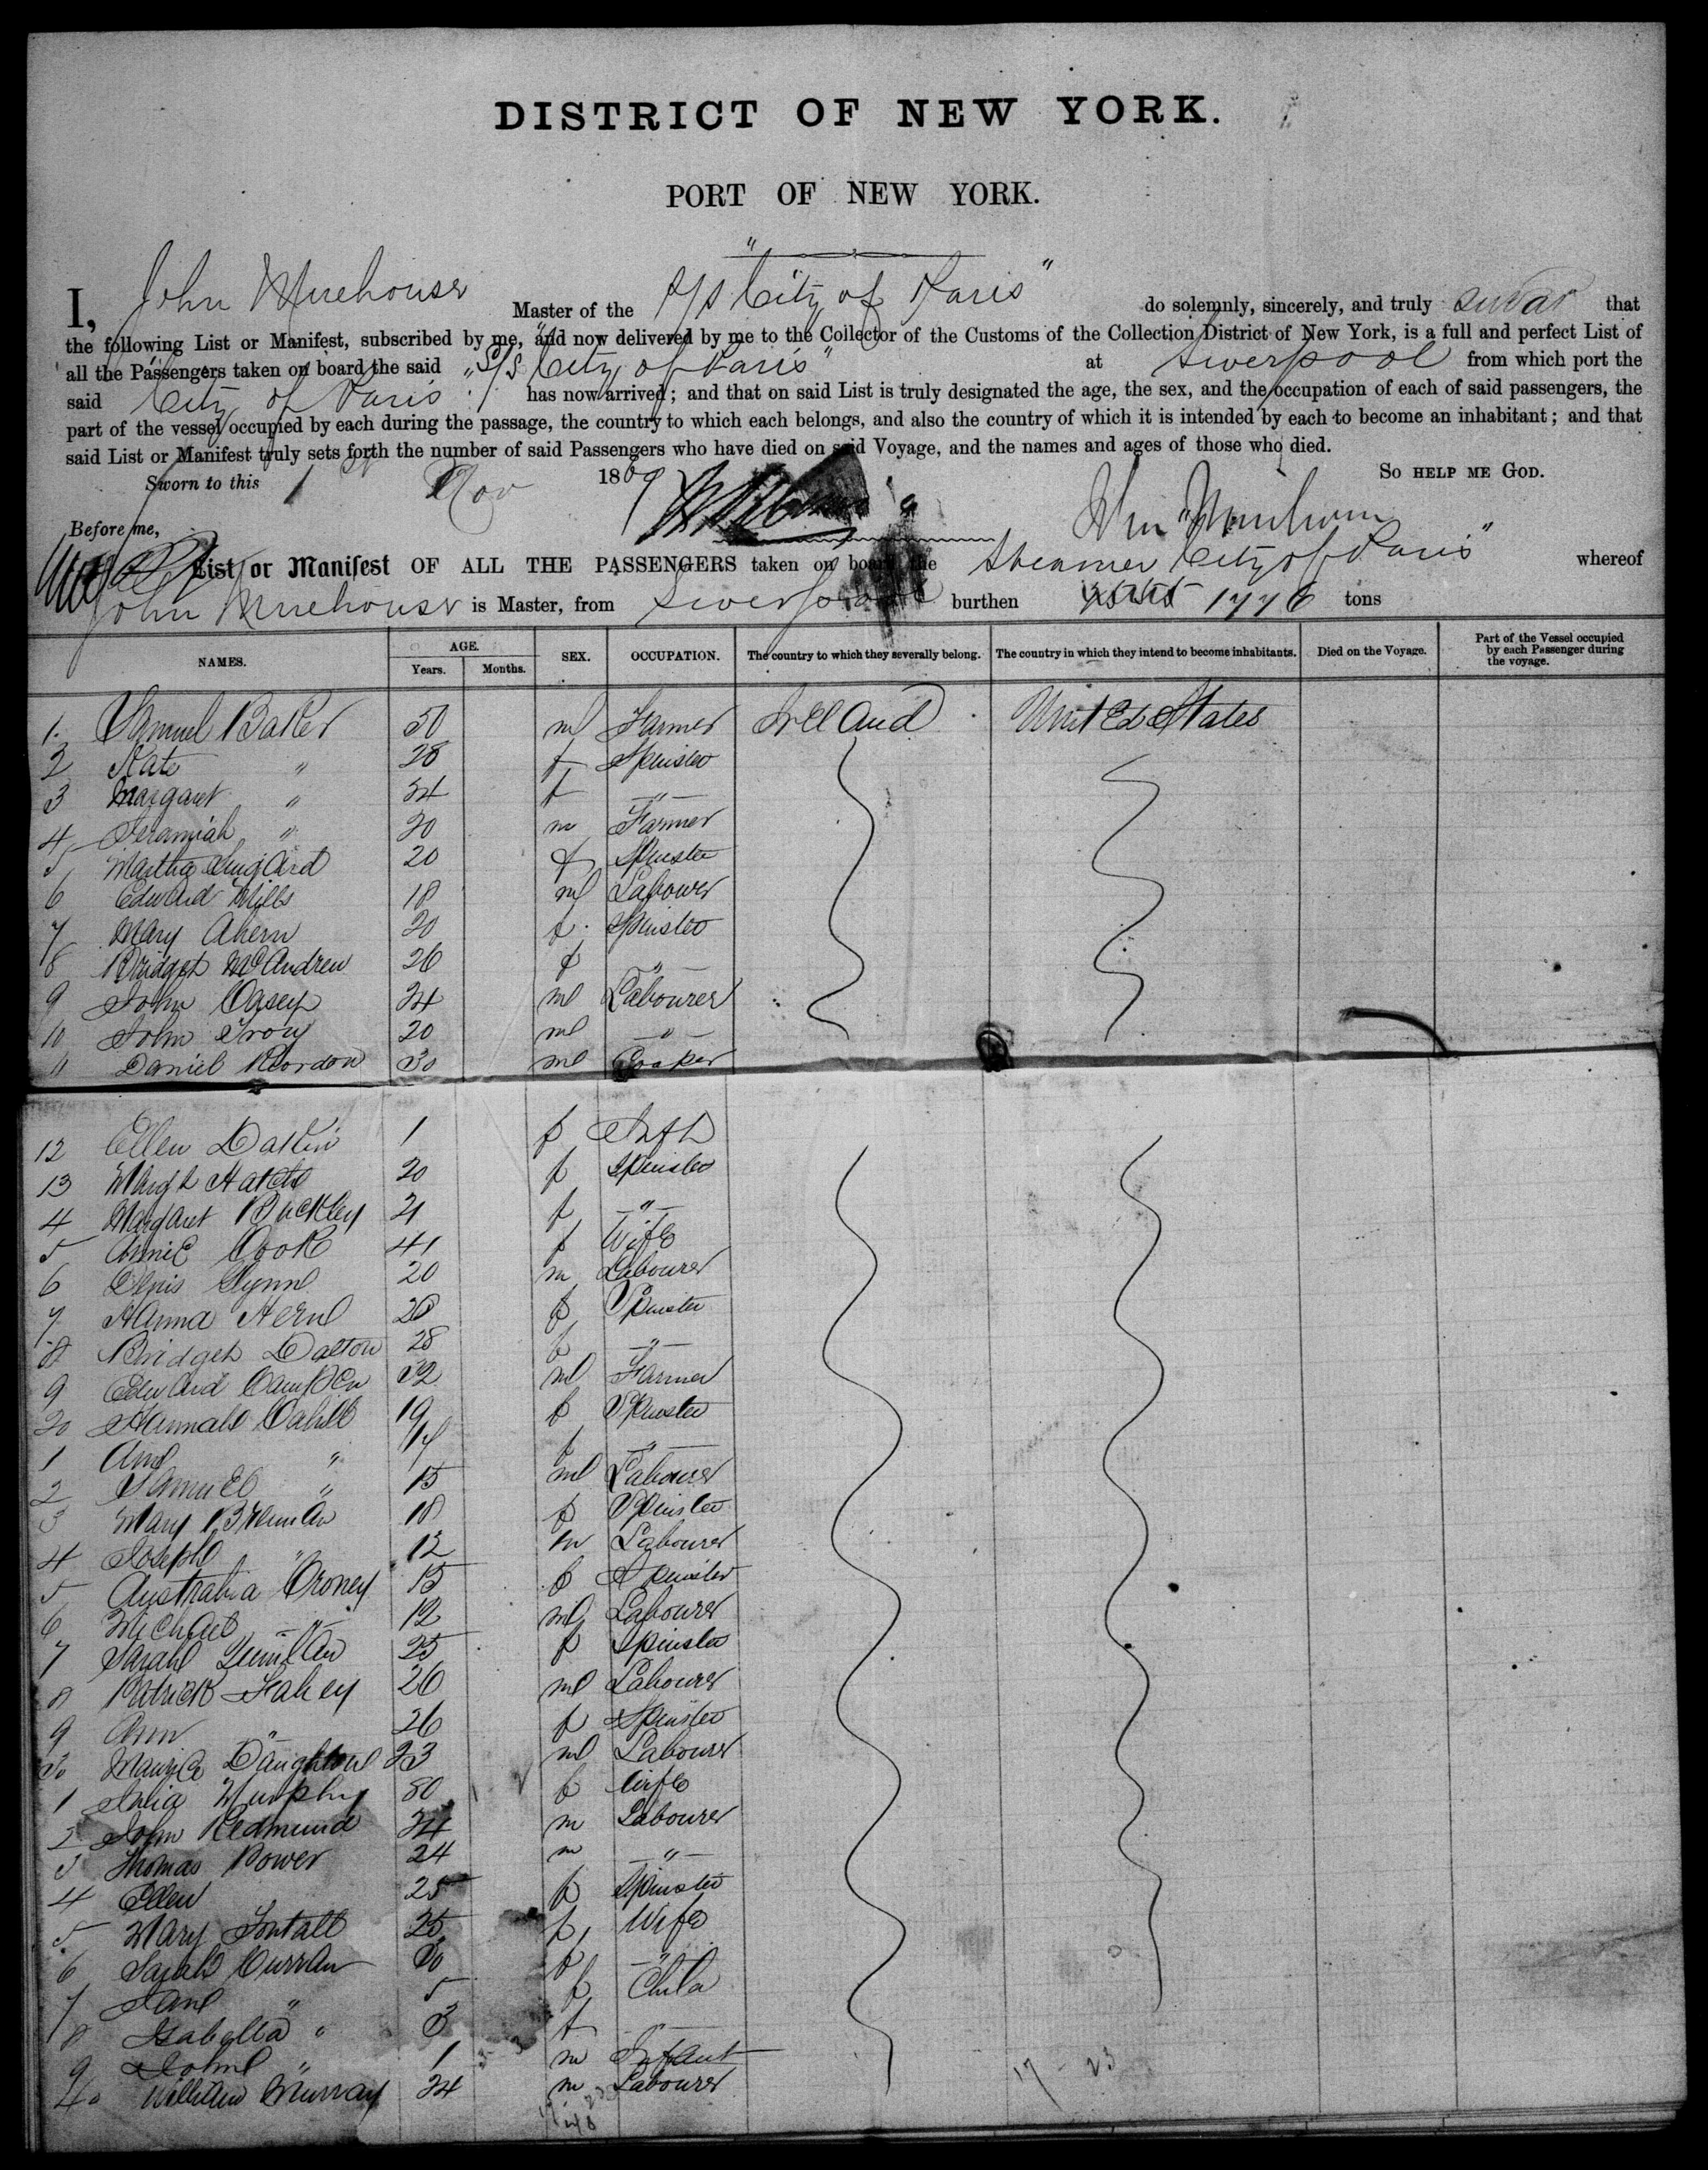 DISTRICT OF NEW YORK.
PORT OF NEW YORK.
I, John Mirehouse Master of the "S/S City of Paris" do solemnly, sincerely, and truly swear that
the following List or Manifest, subscribed by me, and now delivered by me to the Collector of the Customs of the Collection District of New York, is a full and perfect List of
all the Passengers taken on board the said "S/S City of Paris" at Liverpool from which port the
said City of Paris has now arrived; and that on said List is truly designated the age, the sex, and the occupation of each of said passengers, the
part of the vessel occupied by each during the passage, the country to which each belongs, and also the country of which it is intended by each to become an inhabitant; and that
said List or Manifest truly sets forth the number of said Passengers who have died on said Voyage, and the names and ages of those who died.
Sworn to this 1st Nov 1869 SO HELP ME GOD.
Before me, John Mirehouse
List or Manifest OF ALL THE PASSENGERS taken on board the Steamer City of Paris" whereof
John Mirehouse is Master, from Liverpool burthen 1776 tons
NAMES. AGE. SEX. OCCUPATION. The country to which they severally belong. The country in which they intend to become inhabitants. Died on the Voyage. Part of the Vessel occupied by each Passenger during the voyage.
Years. Months.
1. Samuel Baker 50 m Farmer Ireland United States
2 Kate " 28 f Spinster
3 Margaret " 24 f "
4 Jeramiah " 20 m Farmer
5 Martha 20 f Spinster
6 Edward Mills 18 m Labourer
7 Mary Ahern 20 f Spinster
8 Bridget McAndrew 26 f "
9 John Casey 24 m Labourer
10 John Troy 20 m "
11 Daniel Reordon 30 m
12 Ellen Dalton 1 f Inft
13 Margt 20 f Spinster
4 Margaret Buckley 21 f "
5 Annie Cook 41 f Wife
6 Denis Lynne 20 m Labourer
7 Hanna Herne 20 f Spinster
8 Bridget Dalton 28 f "
9 Edward Camben 32 m Farmer
20 Hannah Cahill 19 f Spinster
1 Ann " 17 f "
2 Samuel " 15 m Labourer
3 Mary Brennan 18 f Spinster
4 Joseph " 12 m Labourer
5 Australia Croney 15 f Spinster
6 Michael " 12 m Labourer
7 Sarah Quinlan 25 f Spinster
8 Patrick Fahey 26 m Labourer
9 Ann " 26 f Spinster
30 Maurice Daughton 23 m Labourer
1 Julia Murphy 50 f Wife
2 John Redmund 24 m Labourer
3 Thomas Power 24 m "
4 Ellen 25 f Spinster
5 Mary 25 f Wife
6 Sarah Curran 30 f "
7 Jane " 5 f Child
8 Isabella " 3 f "
9 John " 1 m Infant
40 William Murray 24 m Labourer
17 - 23